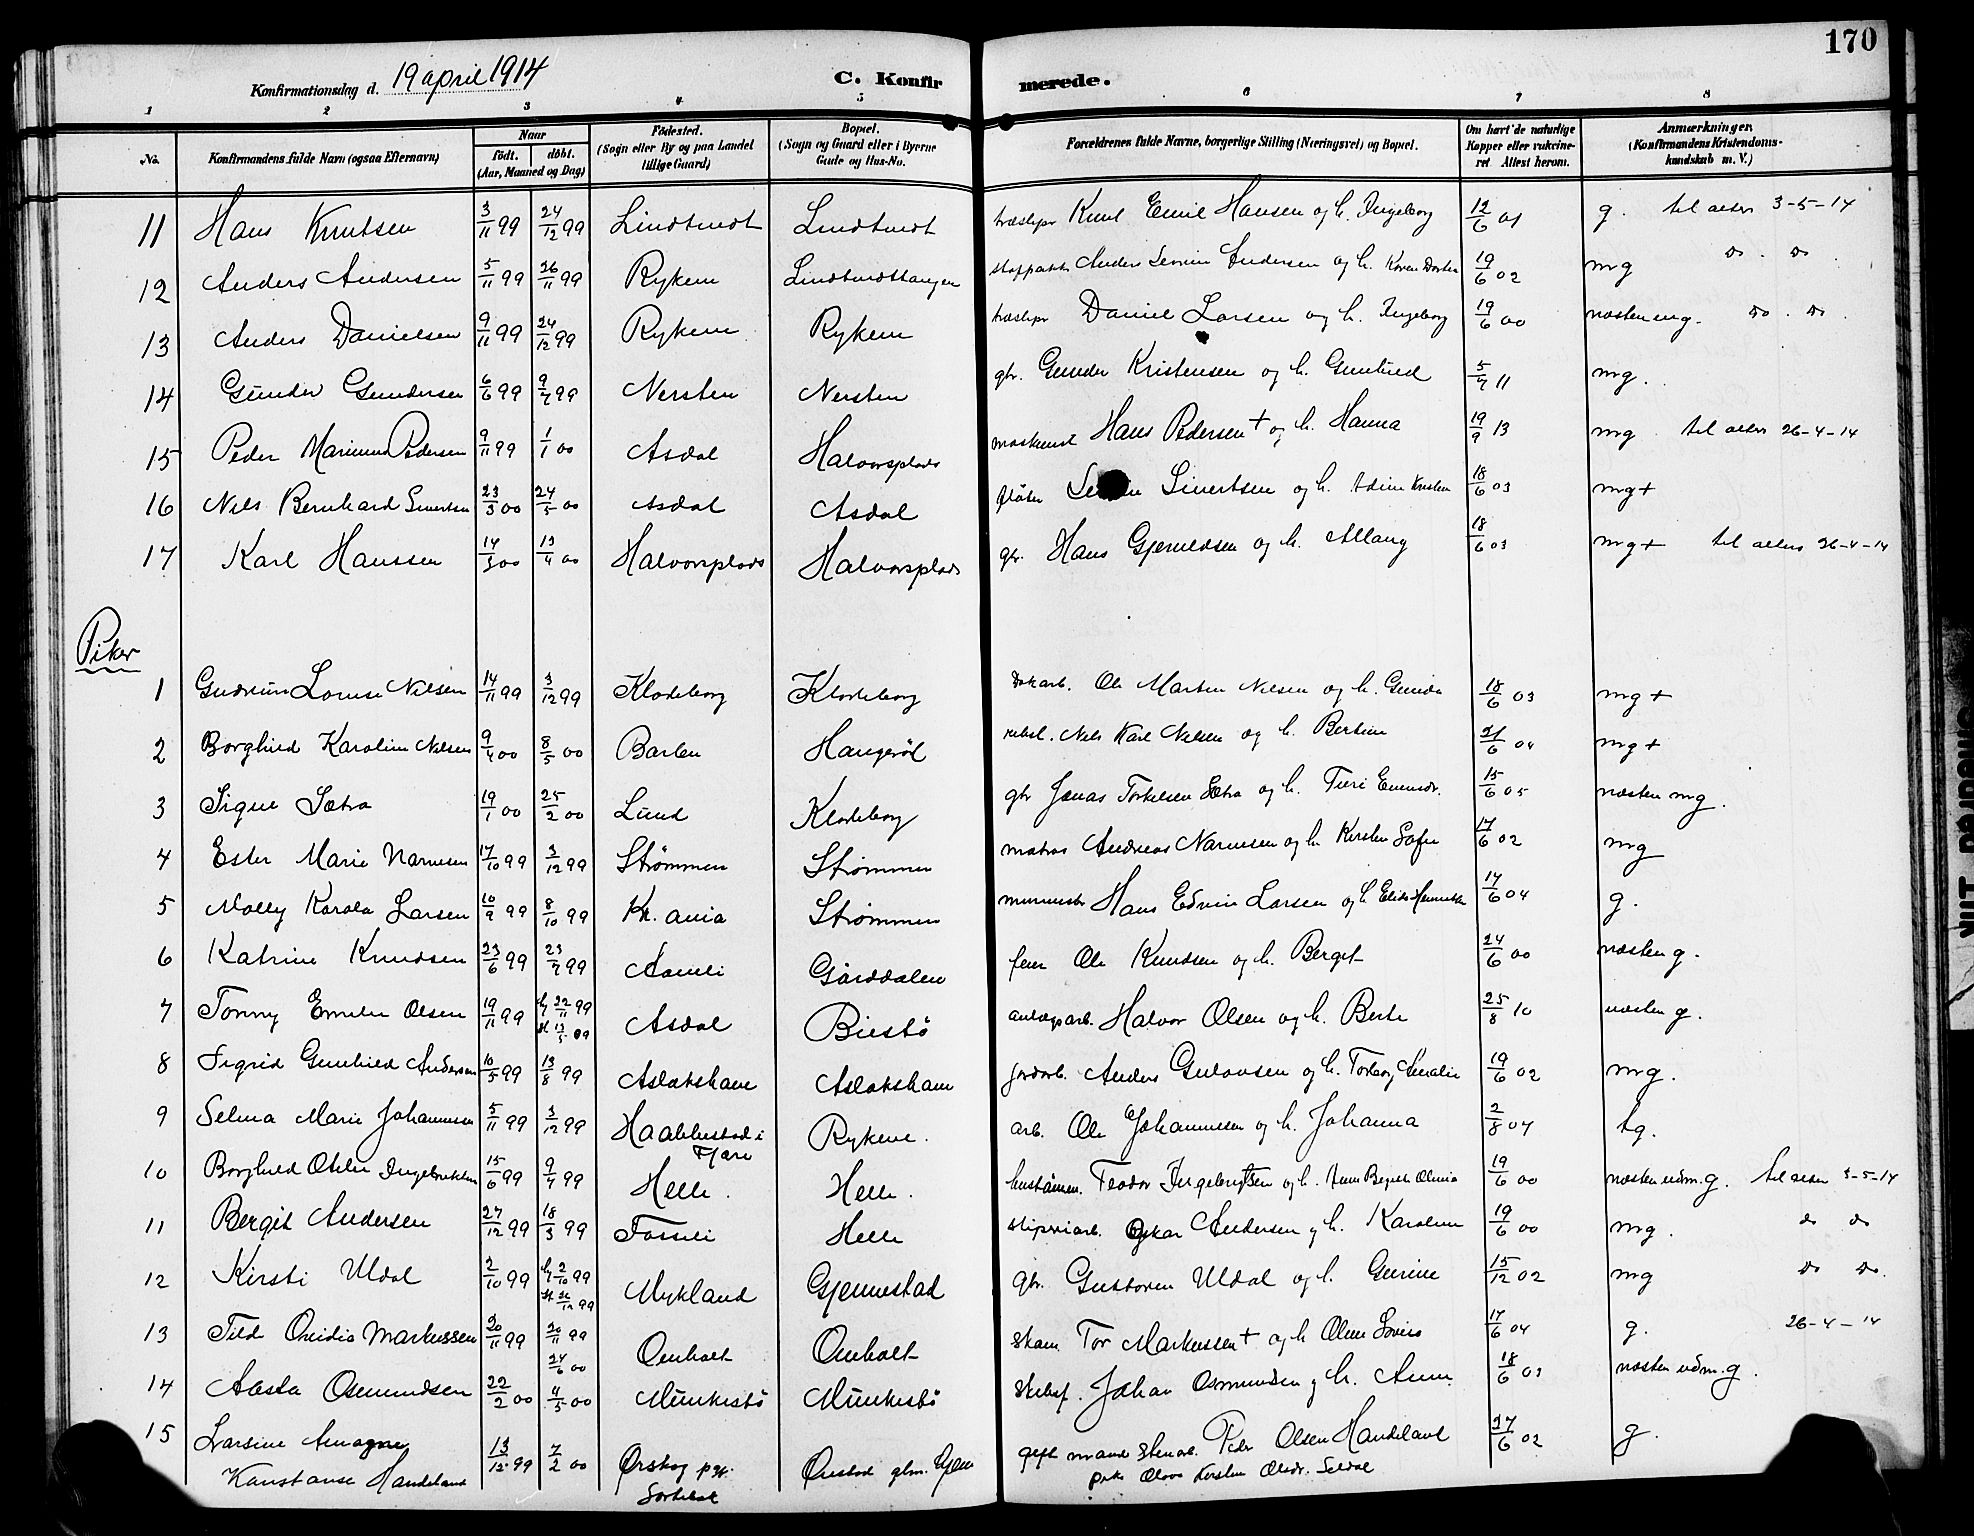 170
Konfirmationsdag d. 19 april 1914
C. Konfirmerede.
1 2 3 4 5 6 7 8
No. Konfirmandens fulde Navn (ogsaa Efternavn) Naar født. døbt. (Aar, Maaned og Dag) Fødested. (Sogn eller By og paa Landet tillige Gaard) Bopæl. (Sogn og Gaard eller i Byerne Gade og Hus-No. Forældrenes fulde Navne, borgerlige Stilling (Næringsvei) og Bopæl. Om havt de naturlige Kopper eller vakcineret Attest herom. Anmærkninger (Konfirmandens Kristendomskundskab m. V.)
11 Hans Knutsen 3/11 99 24/12 99 Lindtveidt Lindtveidt træslipr Knut Emil Hansen og h. Ingeborg 12/6 01 g. til alters 3-5-14
12 Anders Andersen 5/11 99 26/11 99 Rykene Lindtveidttangen Anders Severin Andersen og h. Karen Dortea 19/6 02 mg do. do.
13 Anders Danielsen 9/11 99 24/12 99 Rykene Rykene træslipr Daniel Larsen og h. Ingeborg 19/6 00 næsten mg. do. do.
14 Gunder Gundersen 6/6 99 9/7 99 Nersten Nersten gbr. Gunder Kristensen og h. Gunhild 5/7 11 mg.
15 Peder Marinus Pedersen 9/11 99 1/1 00 Asdal Halvorsplads maskinist Hans Pedersen + og h. Hanna 19/9 13 mg til alters 26-4-14
16 Nils Bernhard Sivertsen 23/3 00 24/5 00 Asdal Asdal fløter Sivertsen og h. Adine Kristine 18/6 03 mg+
17 Karl Hanssen 14/3 00 13/4 00 Halvorsplads Halvorsplads gbr. Hans Gjermldsen og h. Allaug 18/6 03 mg+ til alters 26-4-14
Piker
1 Gudrun Lovise Nilsen 14/11 99 3/12 99 Klodeborg Klodeborg Ole Martin Nilsen og h. Gunda 18/6 03 mg+
2 Borghild Karoline Nilsen 9/4 00 8/5 00 Barbu Haugerød Nils Karl Nilsen og h. Bertine 21/6 04 mg+
3 Signe Sætra 19/1 00 25/2 00 Lund Klodeborg gbr Jonas Torkelsen Sætra og h. Turi Evensdr. 15/6 05 næsten mg.
4 Ester Marie Narvesen 17/10 99 3/12 99 Strømmen Strømmen matros Andreas Narvesen og h. Kirsten Sofie 17/6 02 mg
5 Molly Karola Larsen 10/9 99 8/10 99 Kr.ania Strømmen murmester Hans Edvin Larsen og h. Elida Henriette 14/6 04 g.
6 Katrine Knudsen 23/6 99 23/7 99 Aamli Gårddalen feier Ole Knudsen og h. Berget 24/6 00 næsten g.
7 Tonny Emilie Olsen 19/11 99 hj 22/11 99 st 13/5 99 Asdal Biestø anlægsarb. Halvor Olsen og h. Berte 25/8 10 næsten g.
8 Sigrid Gunhild Andersen 10/5 99 13/8 99 Aslakshavn Aslakshavn jordarb. Anders Gulovsen og h. Torborg Amalie 19/6 02 mg.
9 Selma Marie Johannessen 5/11 99 3/12 99 Haabbestad i Fjære Rykene. arb. Ole Johannessen og h. Johanna 2/8 07 tg.
10 Borghild Otilie Ingebrektsen 15/6 99 9/7 99 Helle. Helle. Teodor Ingebrigtsen og h. Anne Birgitte Olivia 19/6 00 næsten udm. g. til alters 3-5-14
11 Bergit Andersen 27/12 99 18/3 99 Fosseli Helle sliperiarb. Oskar Andersen og h. Karoline 19/6 00 mg. do do
12 Kirsti Uldal 2/10 99 hj 2/10 99 st 26/12 99 Mykland Gjennestad gbr. Guttorm Uldal og h. Gurine 15/12 02 mg do do.
13 Tild Ovidia Markussen 20/11 99 20/11 99 24/6 00 Omholt Omholt skom. Tor Markussen + og h. Oline Lovise 17/6 04 g. 26-4-14
14 Aasta Osmundsen 22/2 00 4/5 00 Munkestø Munkestø skibsf. Johan Osmundsen og h. Anne 18/6 03 næsten udm. g.
15 Larsine Amagne Kanstanse Handeland 13/12 99 7/2 00 Ørskog pgj. Ørestad gift mand stenarb. Peder Olsen Handeland pike Olava Kirstine Olsdr. Seldal 27/6 02 g.